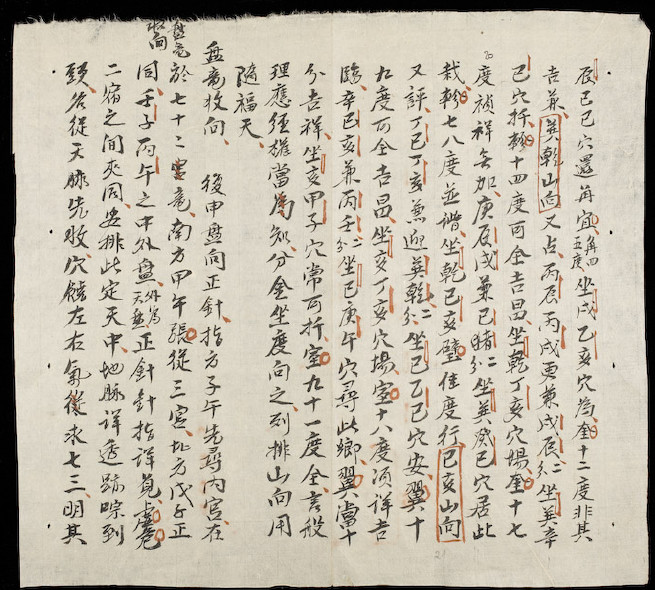 辰己巳穴還再宜角四五度坐戌乙亥穴為奎十二度非其
吉兼巽乾山向又占丙辰丙戌更兼戊辰分二坐巽辛
巳穴扦軫十四度可全吉昌坐乾丁亥穴場奎十七
度禎祥無加庚辰戌兼巳分二坐巽癸巳穴居此
栽軫七八度並諧坐乾己亥壁佳度行巳亥山向
又評丁巳丁亥兼迎巽乾分二坐巳乙巳穴安翼十
九度可全吉昌坐亥丁亥穴場室十八度項詳吉
臨辛巳亥兼丙壬分二坐巳庚午穴尋此鄉翼當十
分吉祥坐亥甲子穴常可扦室九十一度全言般
理應經雄當為知分金坐度向之列排山向用
隨福天
盤竜放向 後申盤向正針指方子午先尋內宮在
盤竜於七十二宮竜南方甲午張從三宮北方戊子正
向
同壬子丙午之中外盤外為天盤正針針指詳覓虛危
二宿之間夾同安排此定天中地脉詳透踪到
頭若從天脉先收穴饒左右氣從求七三明其